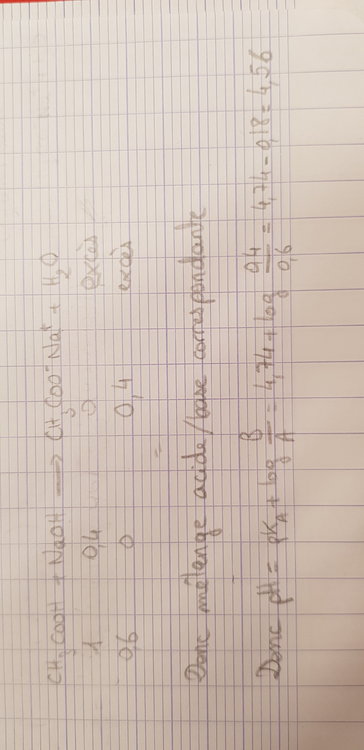 CH₃COOH + NaOH → CH₃COO⁻Na⁺ + H₂O
1 0,4 0 excès
0,6 0 0,4 excès
Donc mélange acide/base correspondante
Donc pH = pKA + log B/A = 4,74 + log 0,4/0,6 = 4,74 - 0,18 = 4,56